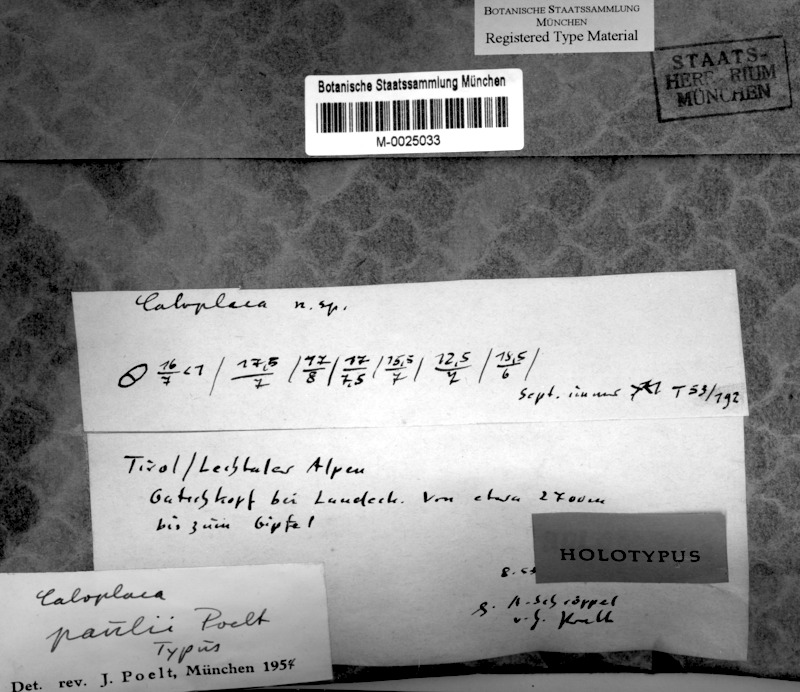 BOTANISCHE STAATSSAMMLUNG
MÜNCHEN
Registered Type Material
STAATS-
MÜNCHEN
Botanische Staatssammlung München
M-0025033
Caloplaca n. sp.
16/7 <1 / 17,5/7 / 17/8 / 17/7,5 / 15,5/7 / 12,5/7 / 15,5/6 /
Sept. immer <1 T 53/192
Tirol/Lechtaler Alpen
Gatschkopf bei Landeck. Von etwa 2700m
bis zum Gipfel
HOLOTYPUS
8.
Caloplaca
paulii Poelt
Typus
Det. rev. J. Poelt, München 1954